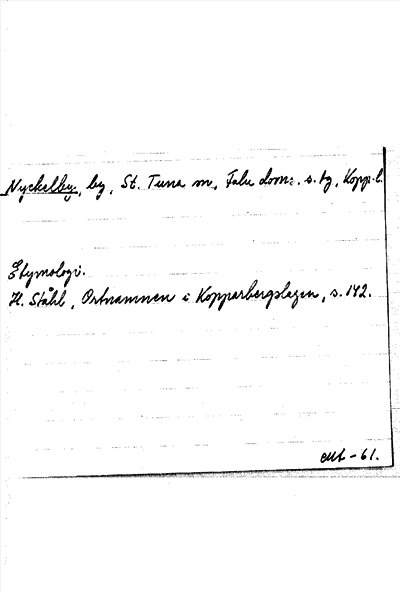 Nyckelby, by, St. Tuna sn, Falu doms. s. tg, Kopp. l.
Etymologi.
H. Ståhl, Ortnamnen i Kopparbergslagen, s. 142.
-61.